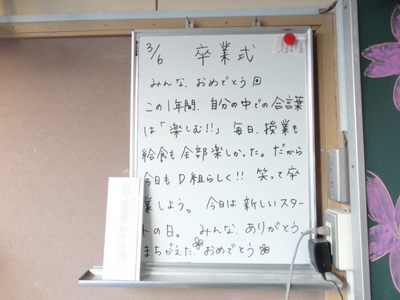 3/6 卒業式
みんな、おめでとう
この1年間、自分の中での合言葉
は「楽しむ!!」毎日、授業も
給食も全部楽しかった。だから
今日もD組らしく!! 笑って卒
業しよう。今日は新しいスター
トの日。みんな、ありがとう
まちがえた おめでとう